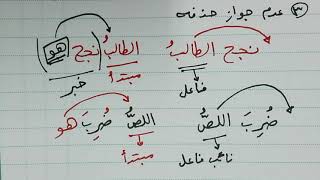 ③ عدم جواز حذفه
نجح الطالبُ الطالبُ نجح (هو)
فاعل مبتدأ خبر
ضُرِبَ اللصُّ اللصُّ ضُرِبَ هو
نائب فاعل مبتدأ